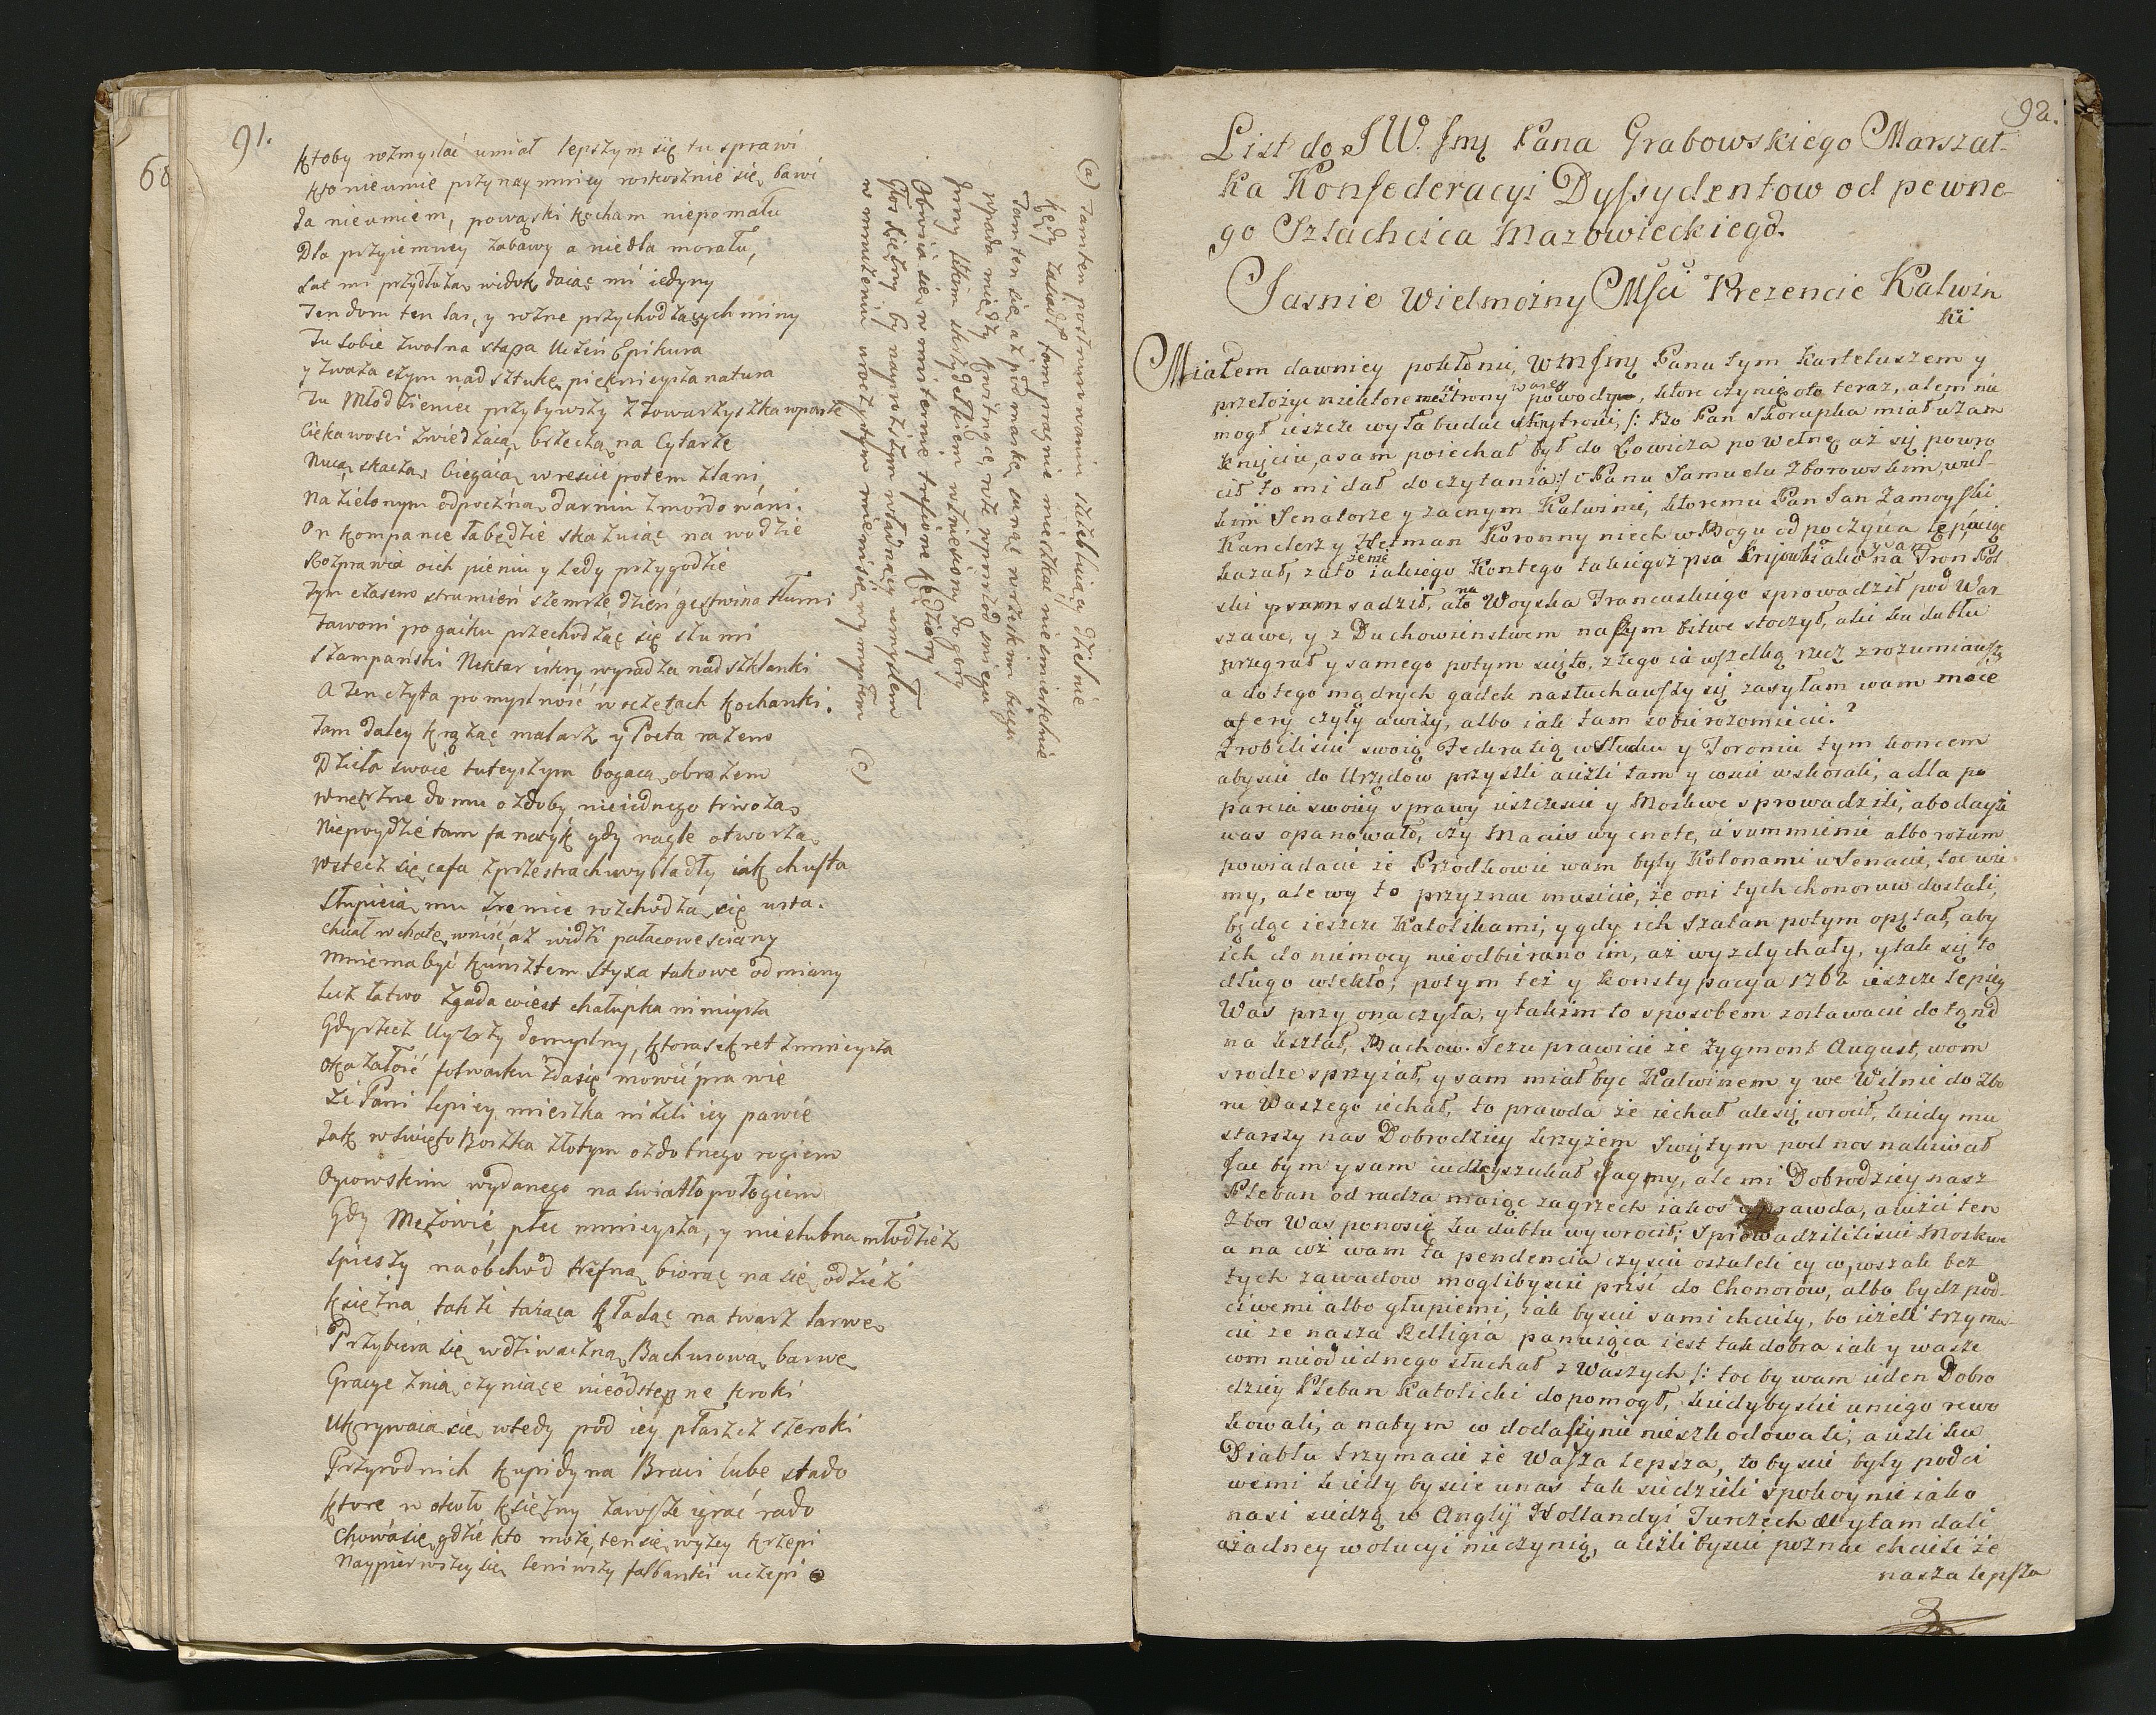 91.
68
Ktoby rozmyslać umiał lepszym się tu sprawi
Kto nieumie przynaymniey roskosznie się bawi
Ja nieumiem, powąski kocham niepomału
Dla przyiemney zabawy a niedla morału,
Lat mi przydłuża widok daiąc mi iedyny
Ten dom ten las, y rożne przychodzących miny
Tu sobie zwolna stąpa Uczeń Epikura
y zważa czym nad sztukę pięknieysza natura
Tu Młodzieniec przybywszy z Towarzyszką wparze
Ciekawości zwiedzaią brzęczą na Cytarze
Nucą skaczą biegaią wreście potem zlani,
Na zielonym odpoczną darniu zmordowani.
On kompance łabędzie skazuiąc na wodzie
Rozprawia oich pieniu y Ledy przygodzie
Tym czasem strumień szemrze, dzień gęstwina tłumi
Fawoni po gaiku przechodząc się szumi
Szampański Nektar iskry wysadza nad szklanki
A ten czyta pomyslność woczętach kochanki.
Tam daley krążąc malarz y Poeta razem
Dzieła swoie tuteyszym bogacą obrazem
wnętrzne domu ozdoby nieiednego trwożą
Niepoydzie tam fanatyk gdy nagle otworzą
wstecz się cofa zprzestrachu wybladły iak chusta
Słupieią mu źrenice rozchodzą się usta.
Chciał w chatę wniść, aż widzi pałacowe sciany
Mniema być kunsztem Styxa takowe odmiany
Lecz łatwo zgada co iest chałupka ninieysza
Gdyż iest Uyzrzy domyslny, ktora sekret zmnieysza
Okazałość folwarku zda się mowić prawie
Ze Pani lepiey mieszka niżeli iey pawie
Jak wswięto Bożka złotym ozdobnego rogiem
Gdy Mężowie, płeć mnieysza, y nieslubna młodzież
Spieszy na obchod trefną biorąc na się odzież
Księżna także taiąca kładąc na twarz larwę
Przybiera się wdziwaczną Bachusową barwę
Gracye znią czyniące nieodstępne kroki
Ukrywaią się wtedy pod iey płaszcz szeroki
Przyrodnich kupidyna Braci lube stado
Ktore w około księżny zawsze igrać rado
Chowa się gdzie kto może, ten się wyżey krzepi
Naypierwszey się leniwszy falbanki uczepi
(a) Tamten postanowieniu szczebluiąc dzielnie
Kędy zasiadł tam pragnie mieszkać niesmiertelnie
Tamten się aż pod maskę sunąc wrzeskim biegu
wpada między kwitnące, wte wpośrod sniegu
Inny lekkim skrzydełkiem wzniesiony do gory
Obwia się w misternie trefione kędziory
Głos księżny by nayrozszym władnący umysłem
w mrużeniu uroczystym niemieści wymysłem (c)
92.
List do JW. Jmę Pana Grabowskiego Marszał-
ka Konfederacyi Dyssydentow od pewne
go Szlachcica Mazowieckiego.
Jasnie Wielmożny Mści Prezencie Kalwin
ki
Miałem dawniey pokłonić, WmJmę Panu tym karteluszem y
przełożyc niektore ze strony waszey powody, ktore czynię oto teraz, alem nie
mogł ieszcze wyła budac chytrosci, /: Bo Pan Skorupka miał użam
knięciu, a sam poiechał był do Łowicza po wełnę, aż się powro
cił to mi dał do czytania :/ o Panu Samuelu Zborowskim, wiel-
kim Senatorze y zacnym Kalwinie, ktoremu Pan Jan Zamoyski
Kanclerz y Hetman Koronny niech w Bogu odpoczywa łep uciąc
kazał, zato że nie iakiegos Kontego takiegoż psa kryiowka iako y wy na Tron Pol
ski psem sadził, ato na Woyska Francuskiego sprowadził pod War
szawe, y z Duchowienstwem naszym bitwe stoczył, ale ka dutku
przegrał y samego potym scięto, z tego ia wszelką rzecz zrozumiawszy
a do tego mądrych gadek nasłuchawszy się zasyłam wam moie
afery czyły awizy, albo iak tam sobie rozomiecie.?
Zrobiliscie swoią Federalią w Słucku y Toroniu tym koncem
abyscie do Urzędow przyszli a iezli tam y cosie wskorali, a dla po
parcia swoiey sprawy ieszczescie y Moskwe sprowadzili, abodayże
was opanowało, czy Macie wy cnote, a summienie albo rozum
powiadacie że Przodkowie wam były Kolonami w Senacie, toć wie-
my, ale wy to przyznac musicie, że oni tych chonorow dostali,
będąc ieszcze Katolikami, y gdy ich Szatan potym opętał, aby
ich do niemocy nieodbierano im, aż wyzdychały, y tak się to
długo wlekło; potym też y konstypacya 1762 ieszcze lepiey
Was przyonaczyła, y takim to sposobem zostawacie dotąnd
na kształ, Bachow. Jezu prawicie że Zygmont August, wom
srodze sprzyiał, y sam miał byc Kalwinem y we Wilnie do Zbo
ru Waszego iechał, to prawda że iechał ale się wrocił, kiedy mu
starszy nas Dobrodziey krzyżem Swiętym pod nos nakiwał
Pleban odradza maiąc za grzech iakos prawda, a iużci ten
Zbor Was ponosie ka dubla wywrocił; Sprowadziliscie Moskwe
a na coż wam ta pendencia czyscie oszaleli cy co, wszak bez
tych zawadow moglibyscie prisć do Chonorow, albo bydz pod-
ciwemi albo głupiemi, iak byscie sami chcieły, bo iezeli trzyma
cie ze nasza Relligia panuiąca iest tak dobra iak y wasze
com nieodiednego słuchał z Waszych /: toc by wam ieden Dobro
dziey Pleban Katolicki dopomogł, kiedybyscie uniego rewo
kowali, a nabym w dodaszynie nieszkodowali, a iezli ka
Diablu trzymacie że Wasza lepsza, to byscie były podci
wemi kiedy byscie unas tak siedzieli spokoynie iako
nasi siedzą w Anglij Hollandyi Turczech
ażadney wolucyi nieczynią, a ieżli byscie poznac chcieli że
nasza lepsza